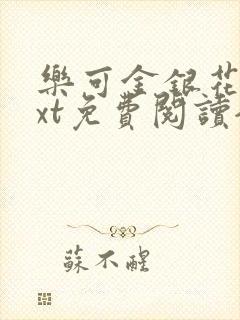 樂可金銀花
xt免費閱讀
蘇不醒